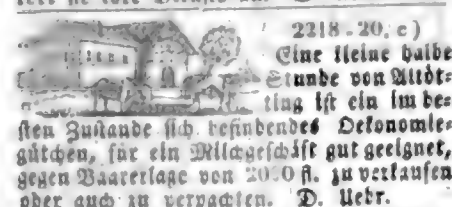 2218.20. c)
Eine kleine halbe
Stunde von Altöt-
ting ist ein im be-
sten Zustande sich befindendes Oekonomie-
gütchen, für ein Milchgeschäft gut geeignet,
gegen Baarerlage von fl. zu verkaufen
oder auch zu verpachten. D. Uebr.